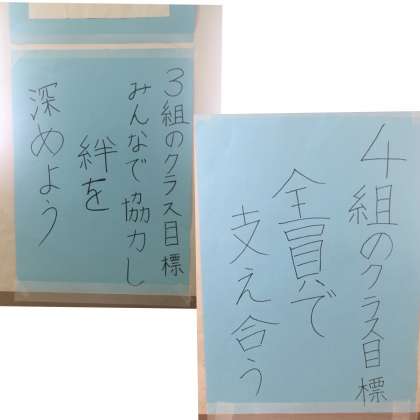 3組のクラス目標
みんなで協力し
絆を
深めよう
4組のクラス目標
全員で
支え合う